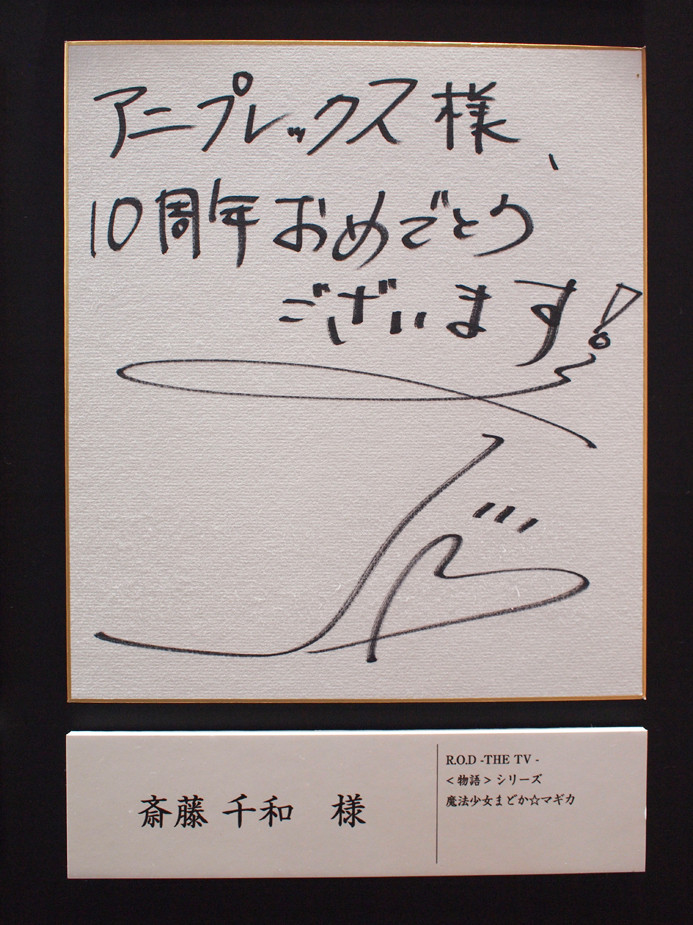 アニプレックス様、
10周年おめでとう
ございます!
斎藤 千和 様
R.O.D -THE TV -
<物語> シリーズ
魔法少女まどか☆マギカ